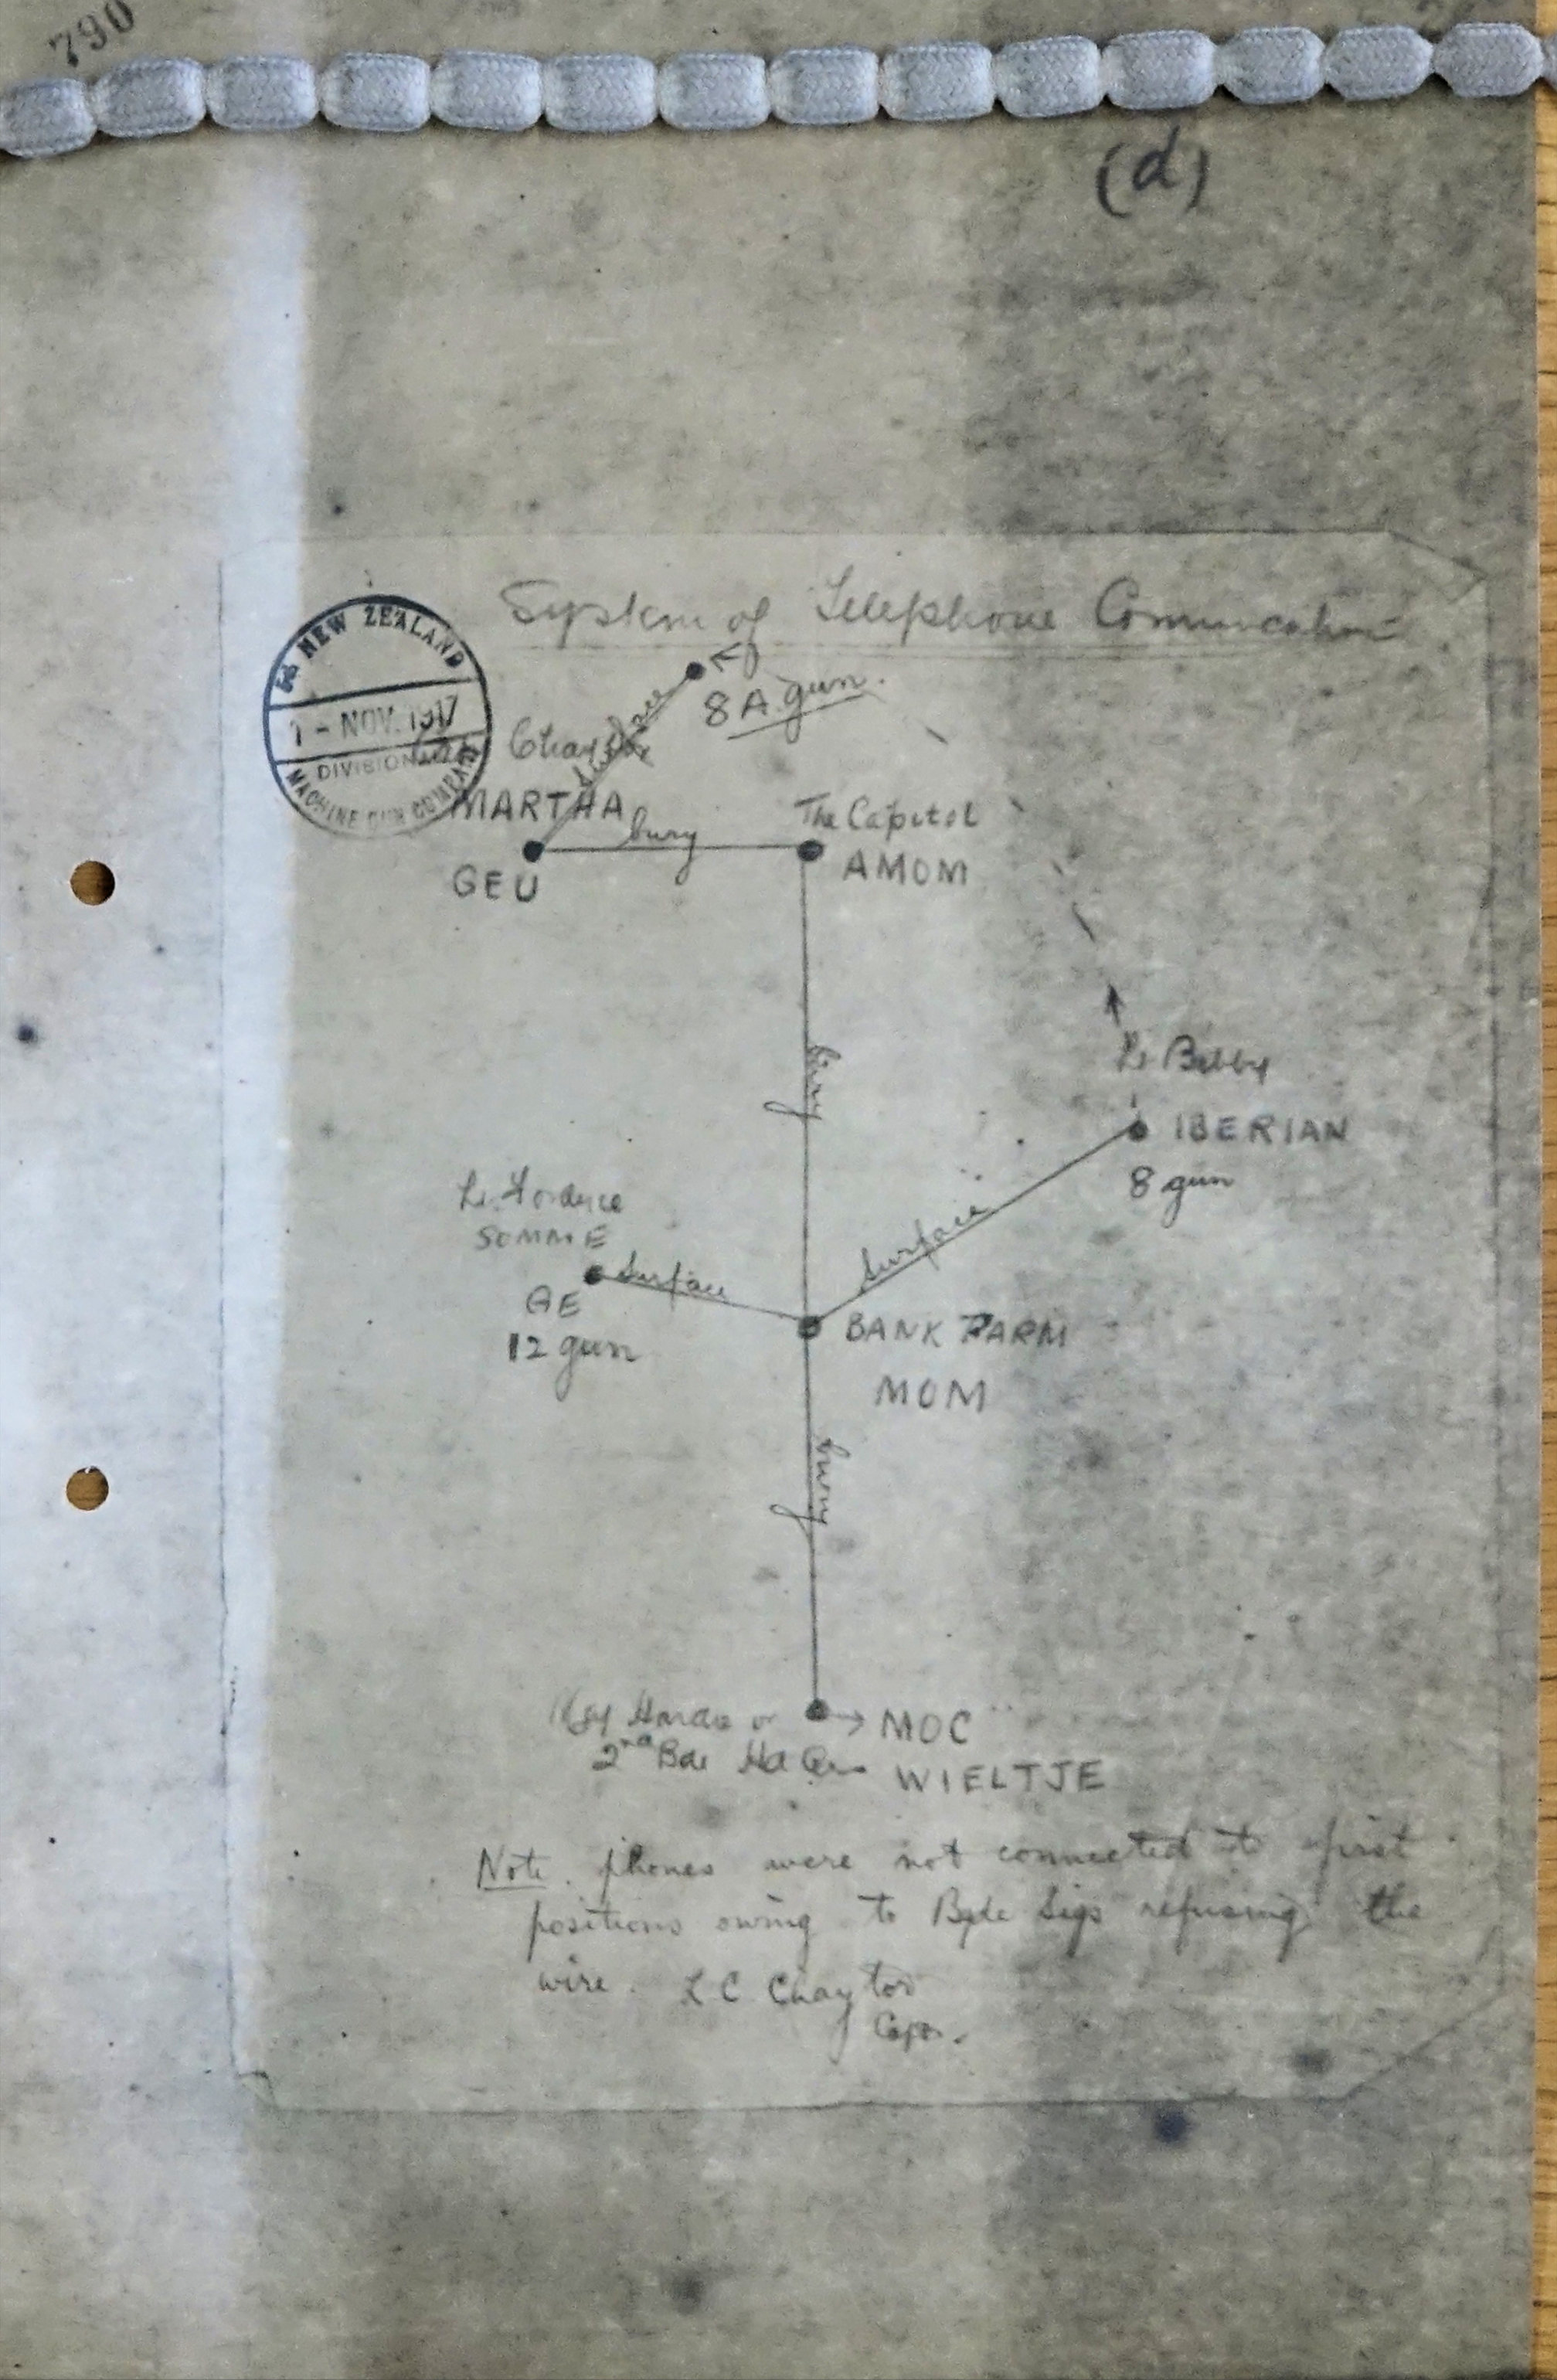 790
(d)
System of Telephone Communication
NEW ZEALAND
1 - NOV. 1917
DIVISIONAL
MACHINE GUN COMPANY
8A gun.
surface
MARTHA
bury
The Capitol
GEU
AMOM
bury
Lt Bibby
IBERIAN
8 gun
Lt. Fordyce
SOMME
surface
surface
12 gun
BANK FARM
MOM
bury
MOC
2nd Bde Hd Qrs WIELTJE
Note. phones were not connected to first
positions owing to Bgde Sigs refusing the
wire. L C Chaytor
Capt.